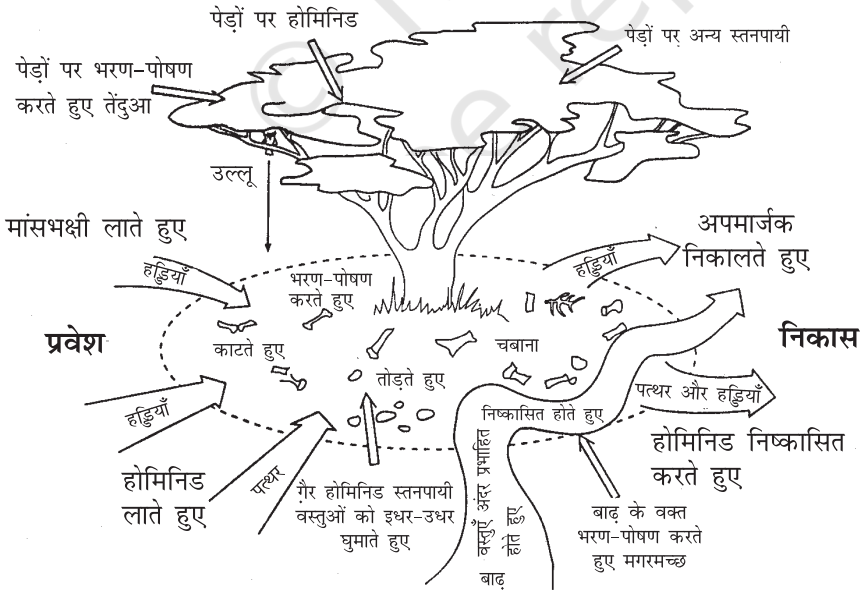 पेड़ों पर होमिनिड
पेड़ों पर अन्य स्तनपायी
पेड़ों पर भरण-पोषण
करते हुए तेंदुआ
उल्लू
मांसभक्षी लाते हुए
हड्डियाँ
भरण-पोषण
करते हुए
हड्डियाँ
अपमार्जक
निकालते हुए
प्रवेश
काटते हुए
चबाना
निकास
तोड़ते हुए
हड्डियाँ
निष्कासित होते हुए
पत्थर और हड्डियाँ
होमिनिड
लाते हुए
पत्थर
ग़ैर होमिनिड स्तनपायी
वस्तुओं को इधर-उधर
घुमाते हुए
वस्तुएँ अंदर प्रभाहित
होते हुए
बाढ़
होमिनिड निष्कासित
करते हुए
बाढ़ के वक्त
भरण-पोषण करते
हुए मगरमच्छ